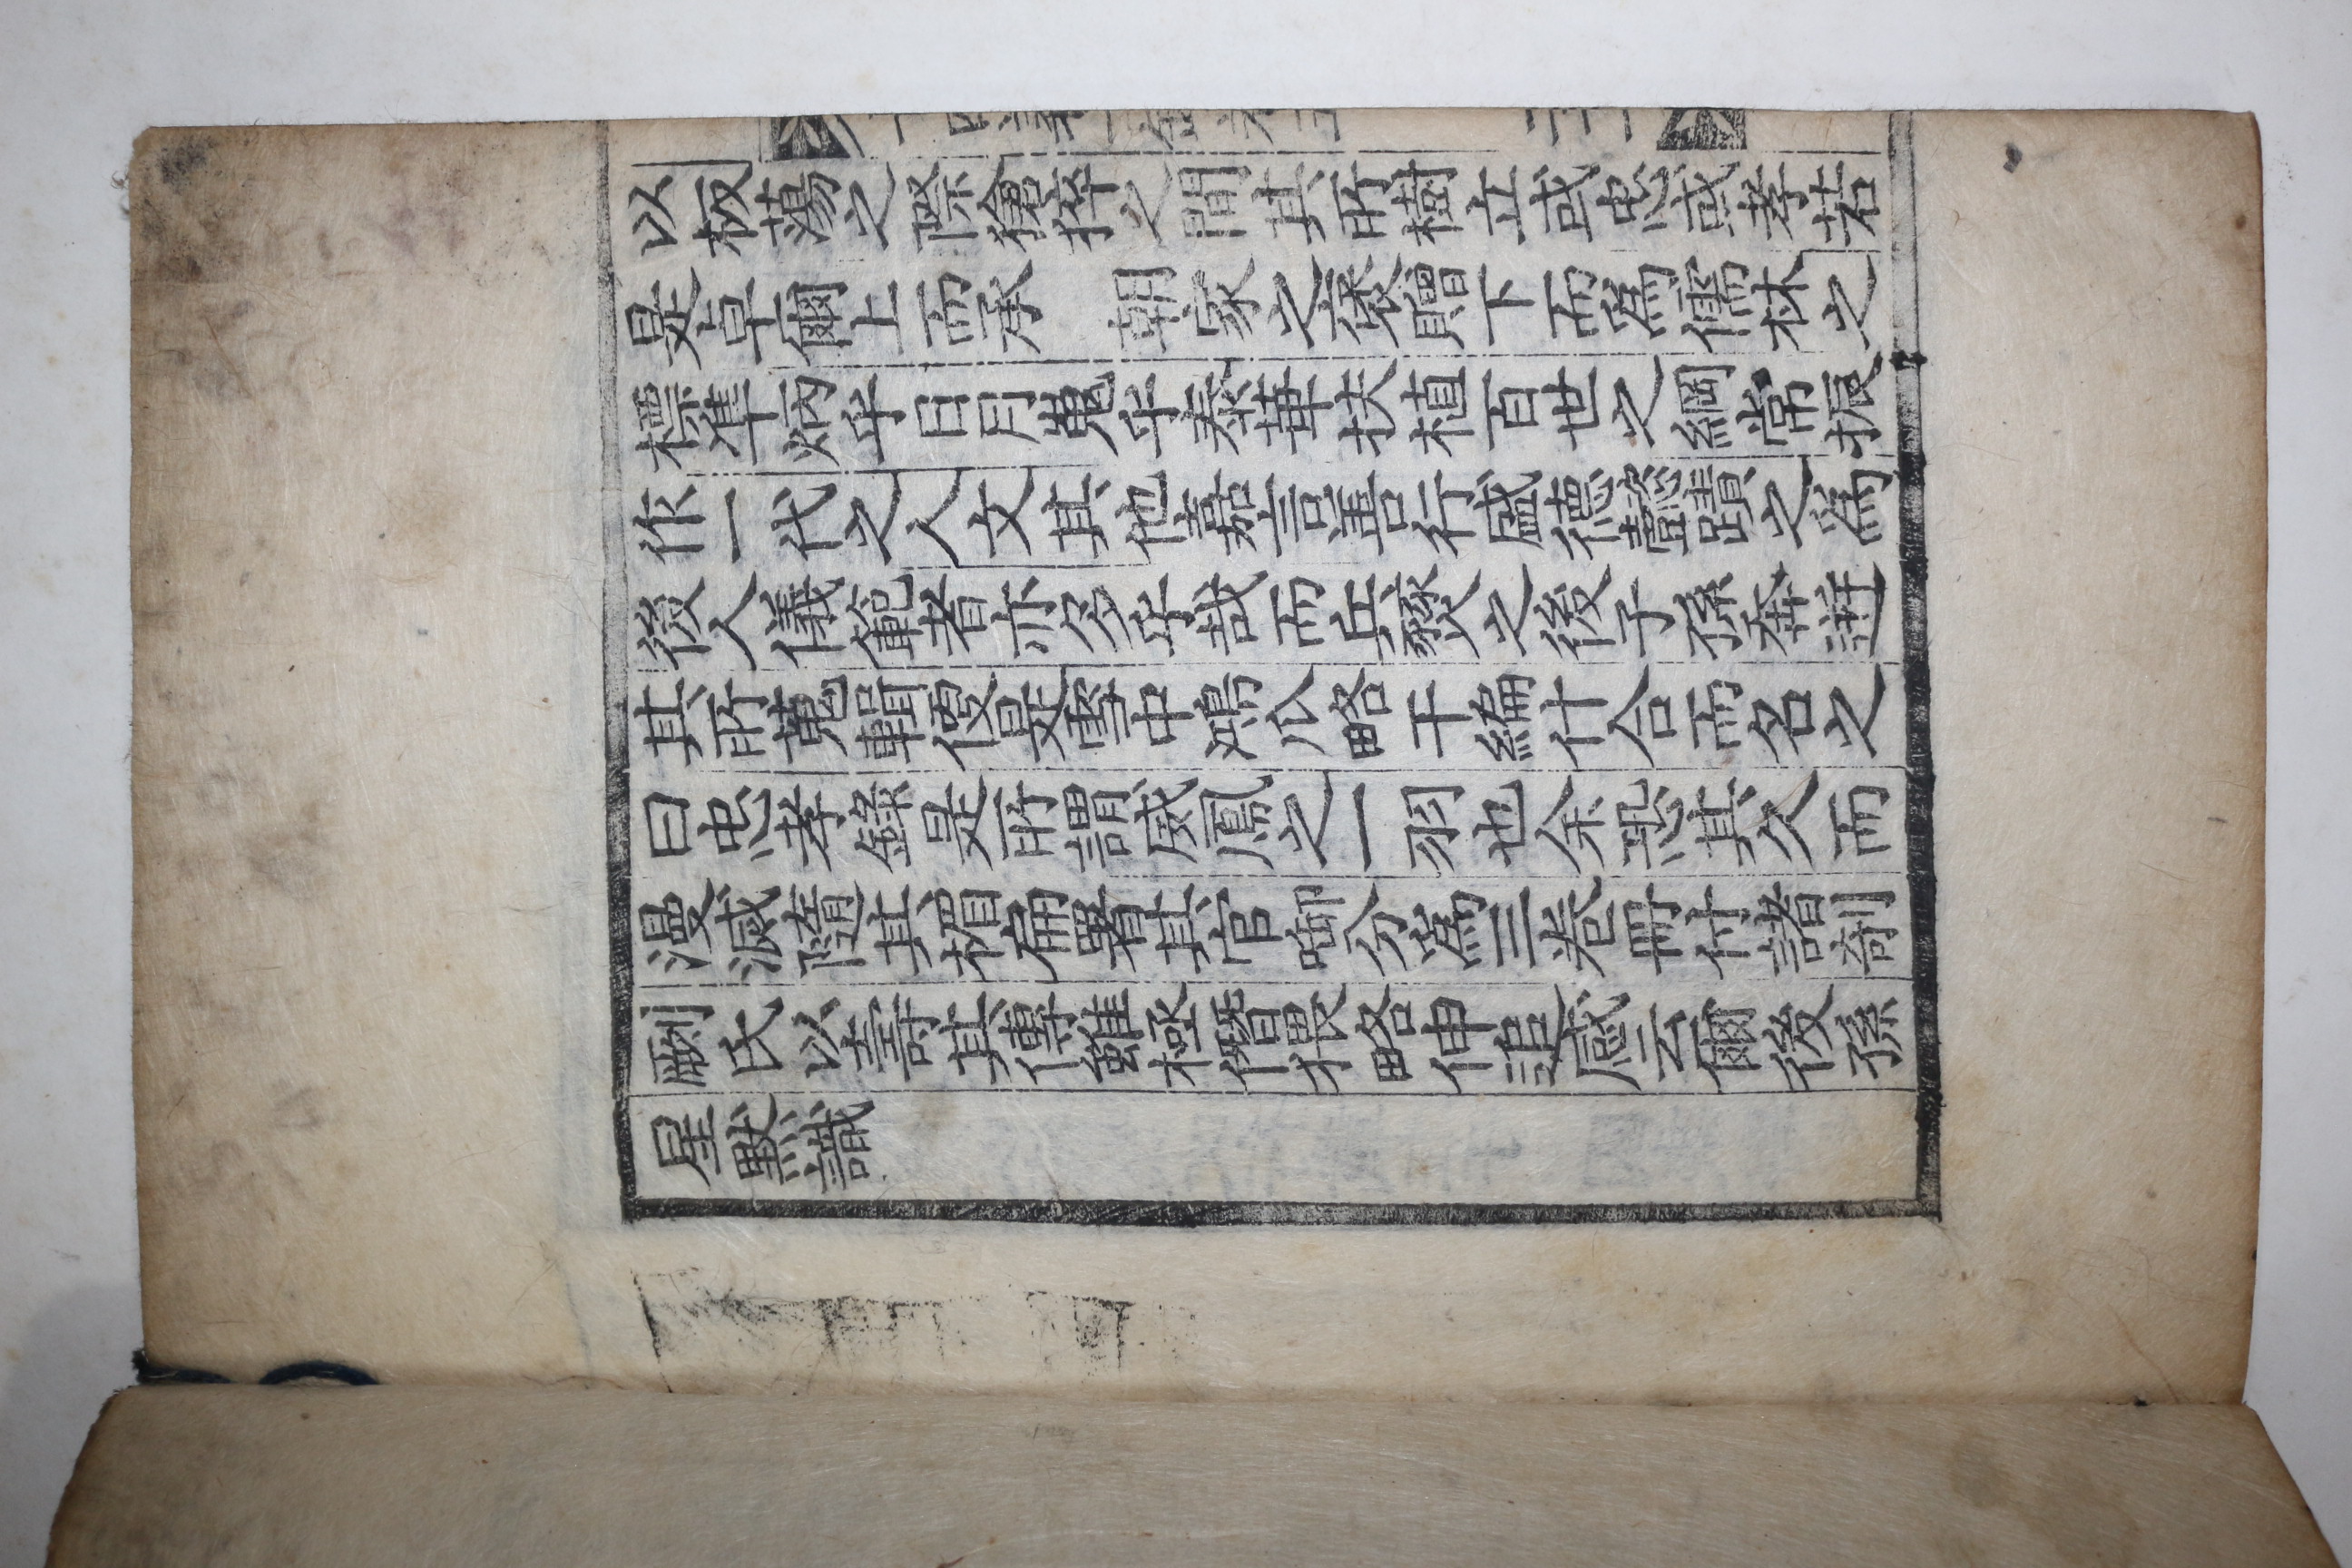 以板蕩之際獊猝之間其所樹立或忠或孝若
是卓爾上而承 朝家之褒贈下而爲儒林之
標準炳乎日月嵬乎泰華扶植百世之綱常振
作一代之人文其他嘉言善行盛德懿蹟之爲
後人儀範者亦多乎哉而兵燹之後子孫奔迸
其所蒐輯優是雪中鴻爪略干編什合而名之
曰忠孝錄是所謂威鳳之一羽也余恐其久而
漫滅隨其楣扁署其官啣分爲三卷冊付諸剞
劂氏以壽其傳雖極僭猥略伸追感云爾後孫
星默識